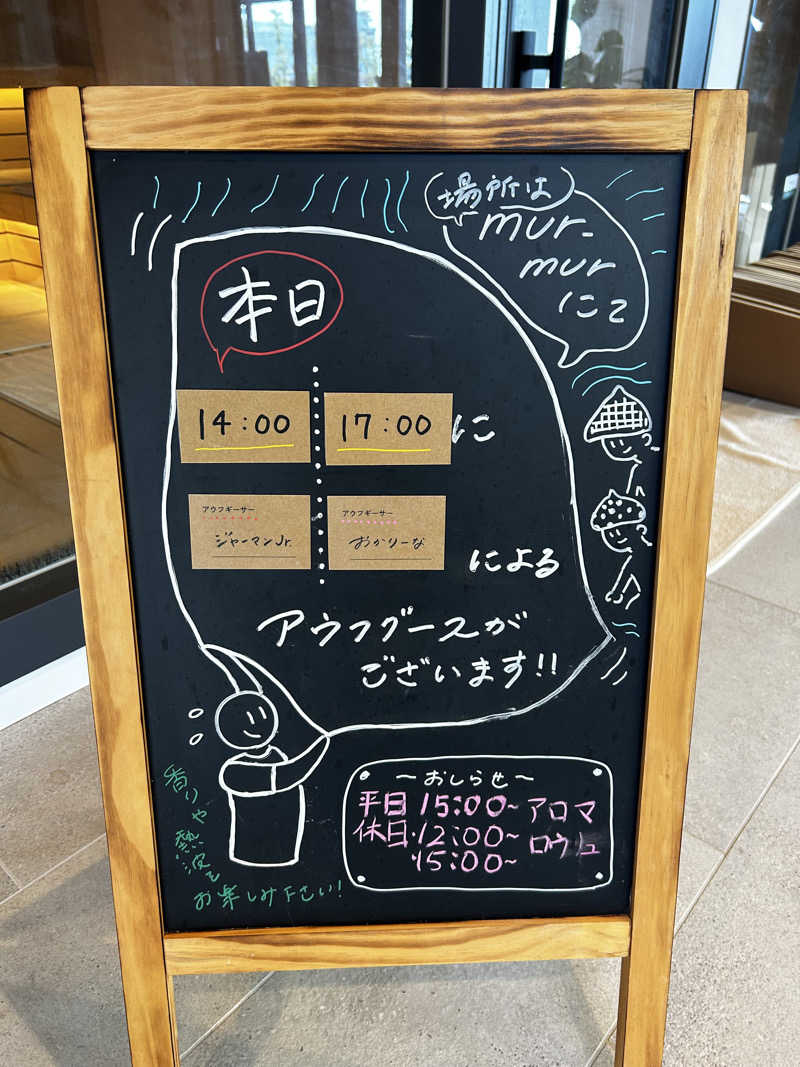 場所は
mur-
mur
にて
本日
14:00 17:00 に
アウフギーサー アウフギーサー
ジャーマンJr. おかりーな
による
アウフグースが
ございます!!
香りや
熱波を
お楽しみ下さい!
〜おしらせ〜
平日 15:00〜 アロマ
休日・12:00〜 ロウリュ
・15:00〜